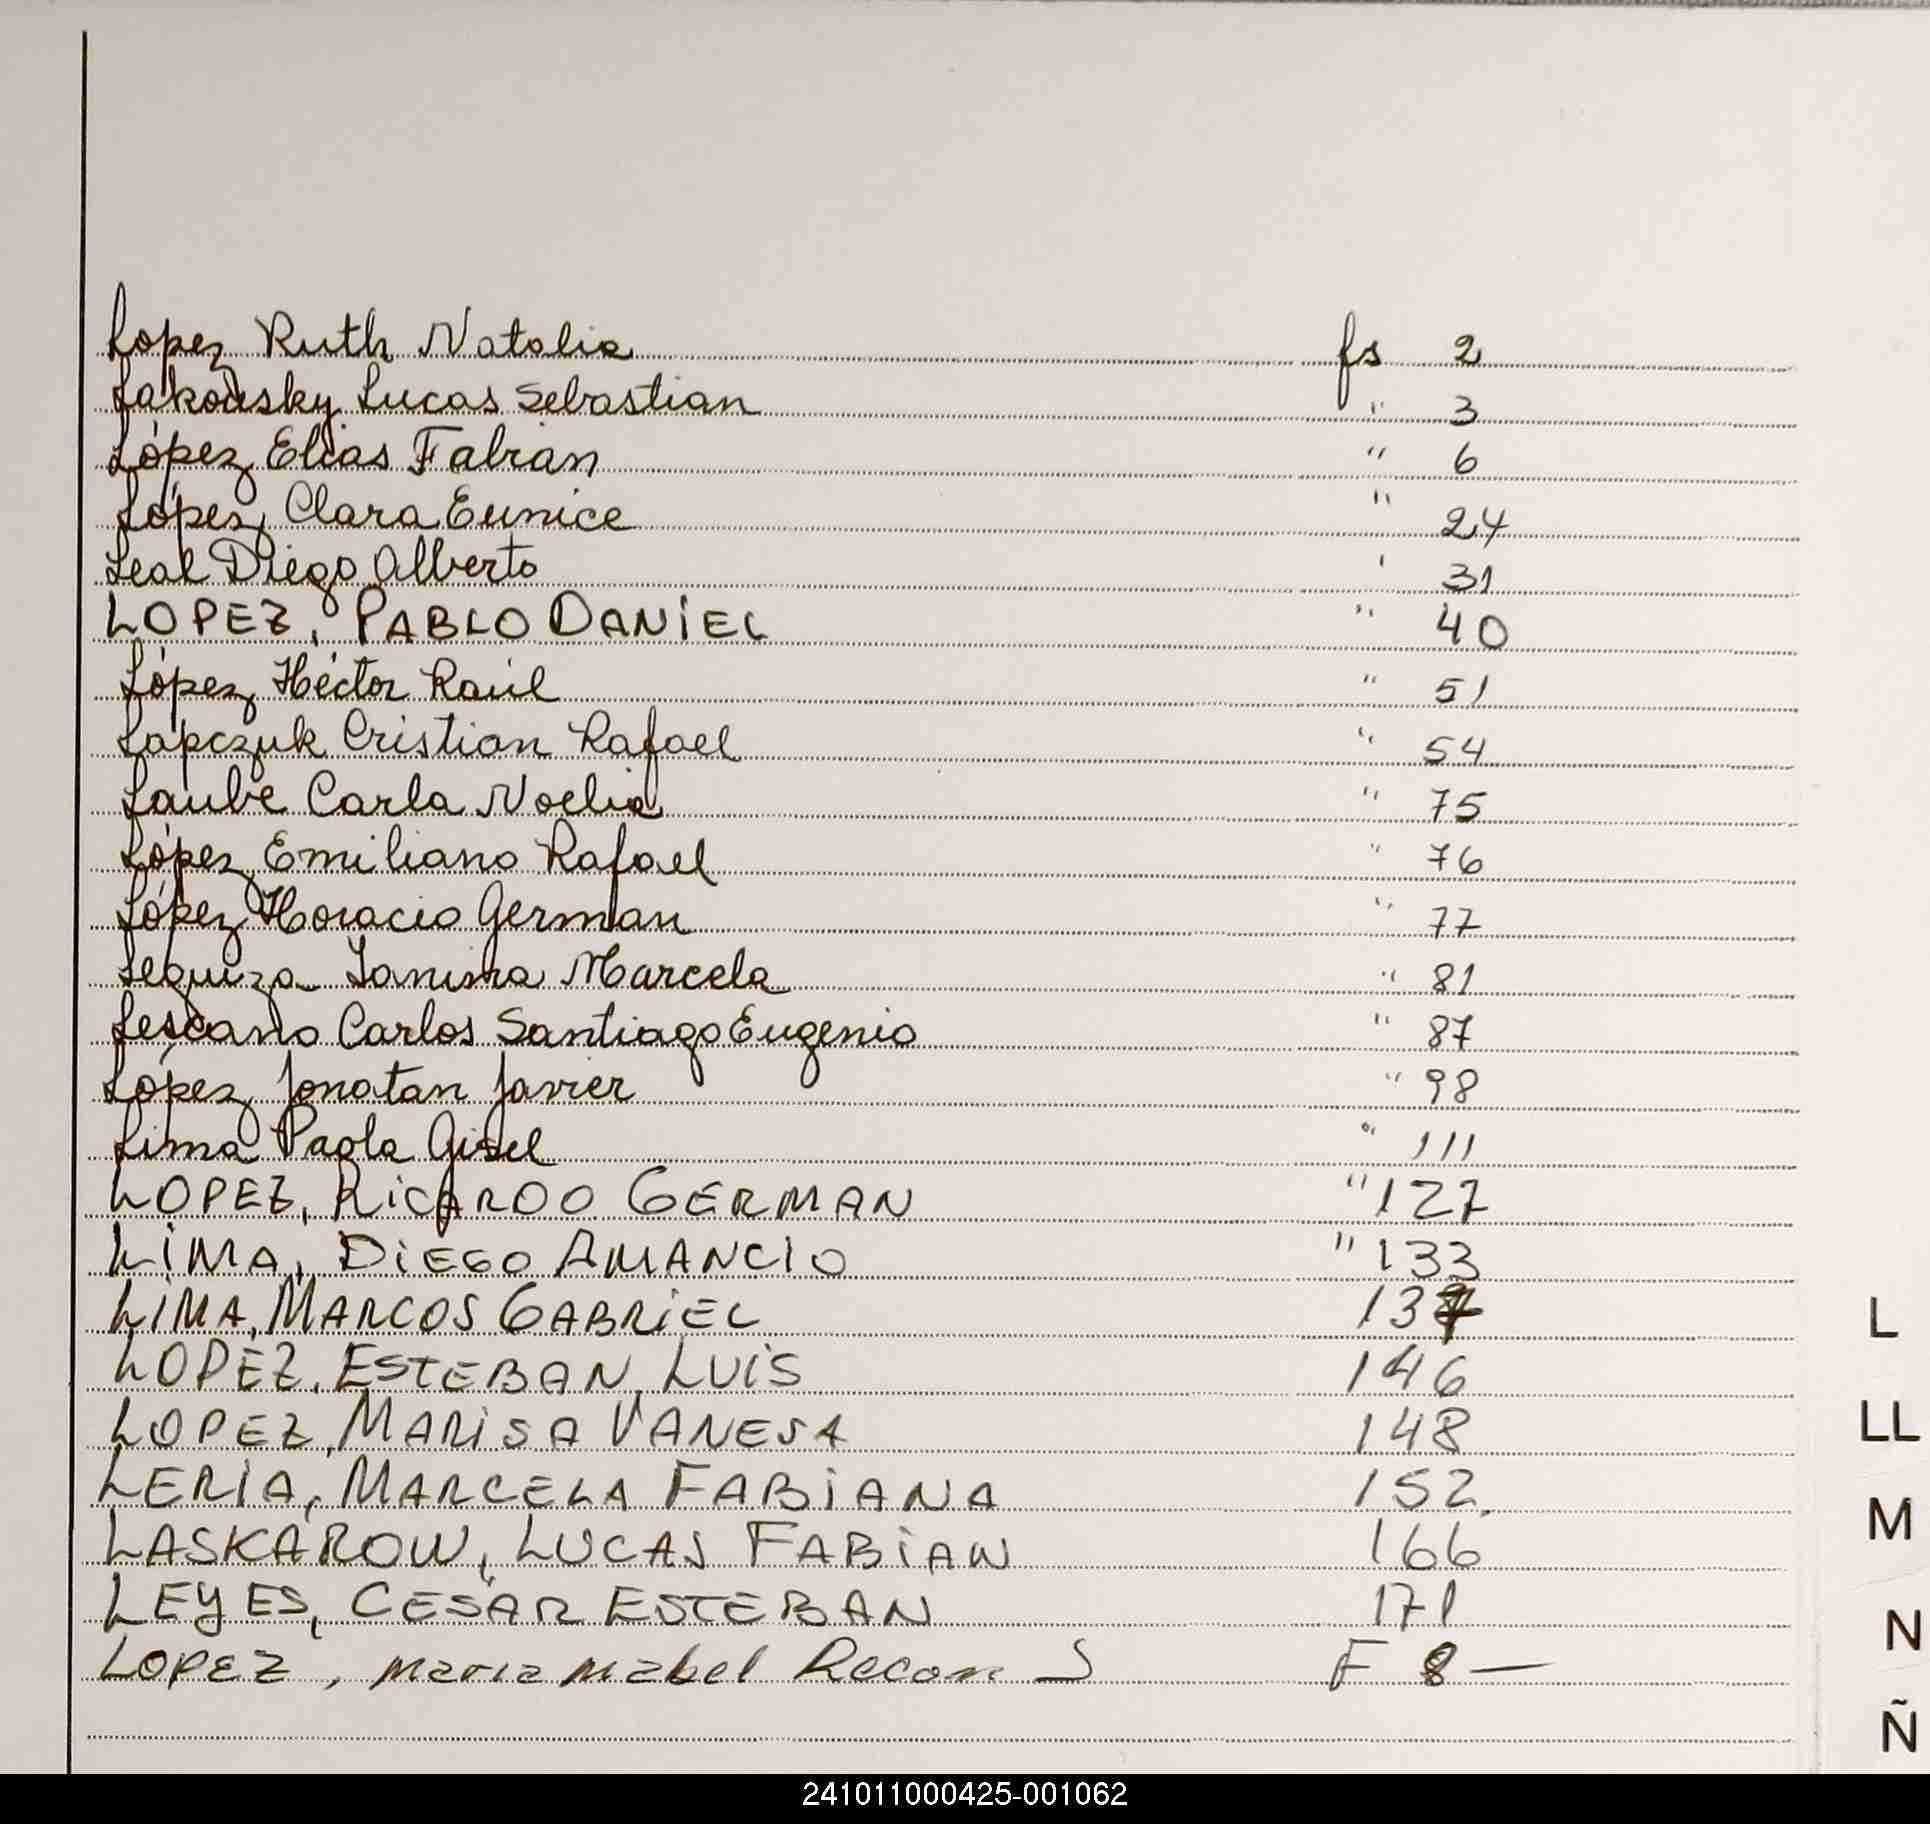 Lopez Ruth Natalia fs 2
Lakowsky Lucas Sebastian " 3
López Elias Fabian " 6
López Clara Eunice " 24
Leal Diego Alberto ' 31
LOPEZ, PABLO DANIEL " 40
López Héctor Raúl " 51
Lapczuk Cristian Rafael " 54
Laube Carla Noelia " 75
López Emiliano Rafael " 76
López Horacio German " 77
Leguiza Yanina Marcela " 81
Lescano Carlos Santiago Eugenio " 87
López Jonatan Javier " 98
Lima Paola Gisel " 111
LOPEZ, RICARDO GERMAN " 127
LIMA, DIEGO AMANCIO " 133
LIMA, MARCOS GABRIEL 137
LOPEZ, ESTEBAN LUIS 146
LOPEZ, MARISA VANESA 148
LERIA, MARCELA FABIANA 152
LASKAROW, LUCAS FABIAN 166
LEYES, CESAR ESTEBAN 171
LOPEZ, Maria Mabel Recon S F 8 —
L
LL
M
N
Ñ
241011000425-001062